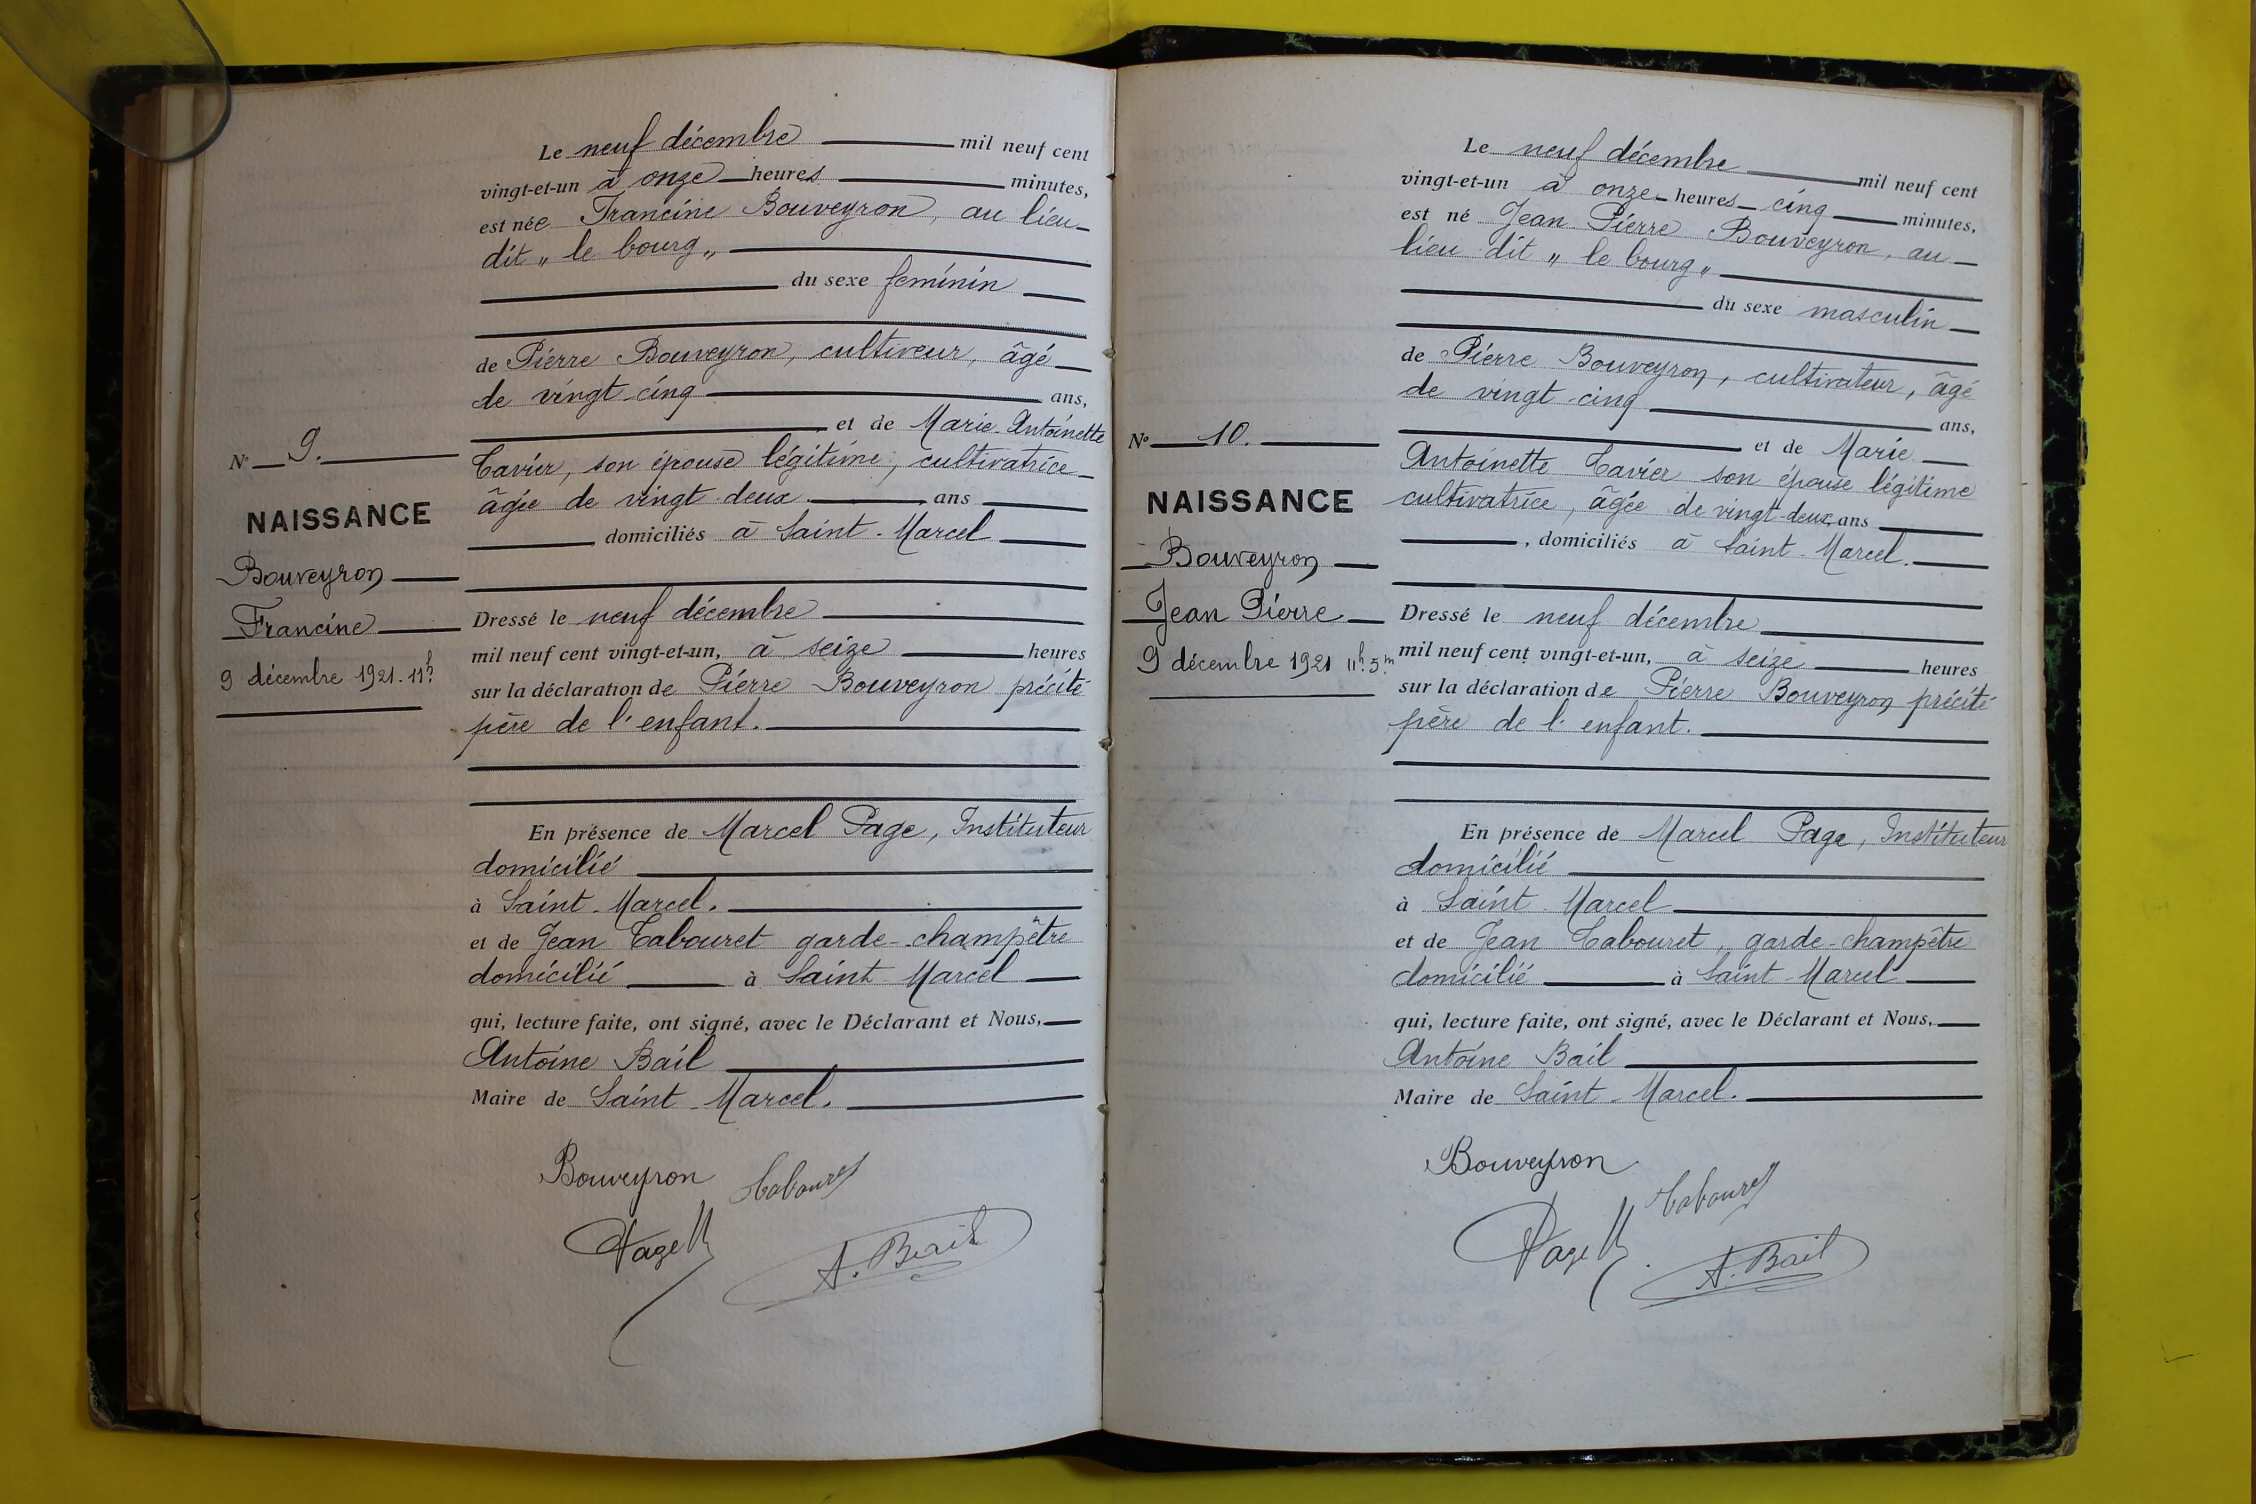 Le neuf décembre mil neuf cent
vingt-et-un à onze heures minutes,
est née Francine Bouveyron, au lieu
dit „ le bourg „
du sexe feminin
de Pierre Bouveyron, cultiveur, âgé
de vingt-cinq ans,
et de Marie-Antoinette
Tavier, son épouse légitime, cultivatrice
âgée de vingt-deux ans
domiciliés à Saint-Marcel
N° 9.
NAISSANCE
Bouveyron
Francine
9 décembre 1921. 11h
Dressé le neuf décembre
mil neuf cent vingt-et-un, à seize heures
sur la déclaration de Pierre Bouveyron précité
père de l'enfant.
En présence de Marcel Page, Instituteur
domicilié
à Saint-Marcel.
et de Jean Tabouret garde-champêtre
domicilié à Saint-Marcel
qui, lecture faite, ont signé, avec le Déclarant et Nous,
Antoine Bail
Maire de Saint-Marcel.
Bouveyron Tabouret
Page
A. Bail
Le neuf décembre mil neuf cent
vingt-et-un à onze heures cinq minutes,
est né Jean Pierre Bouveyron, au
lieu dit „ le bourg „
du sexe masculin
de Pierre Bouveyron, cultivateur, âgé
de vingt-cinq ans,
et de Marie
Antoinette Tavier son épouse légitime
cultivatrice, âgée de vingt-deux ans
, domiciliés à Saint-Marcel.
N° 10.
NAISSANCE
Bouveyron
Jean Pierre
9 décembre 1921 11h.5m.
Dressé le neuf décembre
mil neuf cent vingt-et-un, à seize heures
sur la déclaration de Pierre Bouveyron précité
père de l'enfant.
En présence de Marcel Page, Instituteur
domicilié
à Saint-Marcel
et de Jean Tabouret, garde-champêtre
domicilié à Saint-Marcel
qui, lecture faite, ont signé, avec le Déclarant et Nous,
Antoine Bail
Maire de Saint-Marcel.
Bouveyron
Tabouret
Page
A. Bail